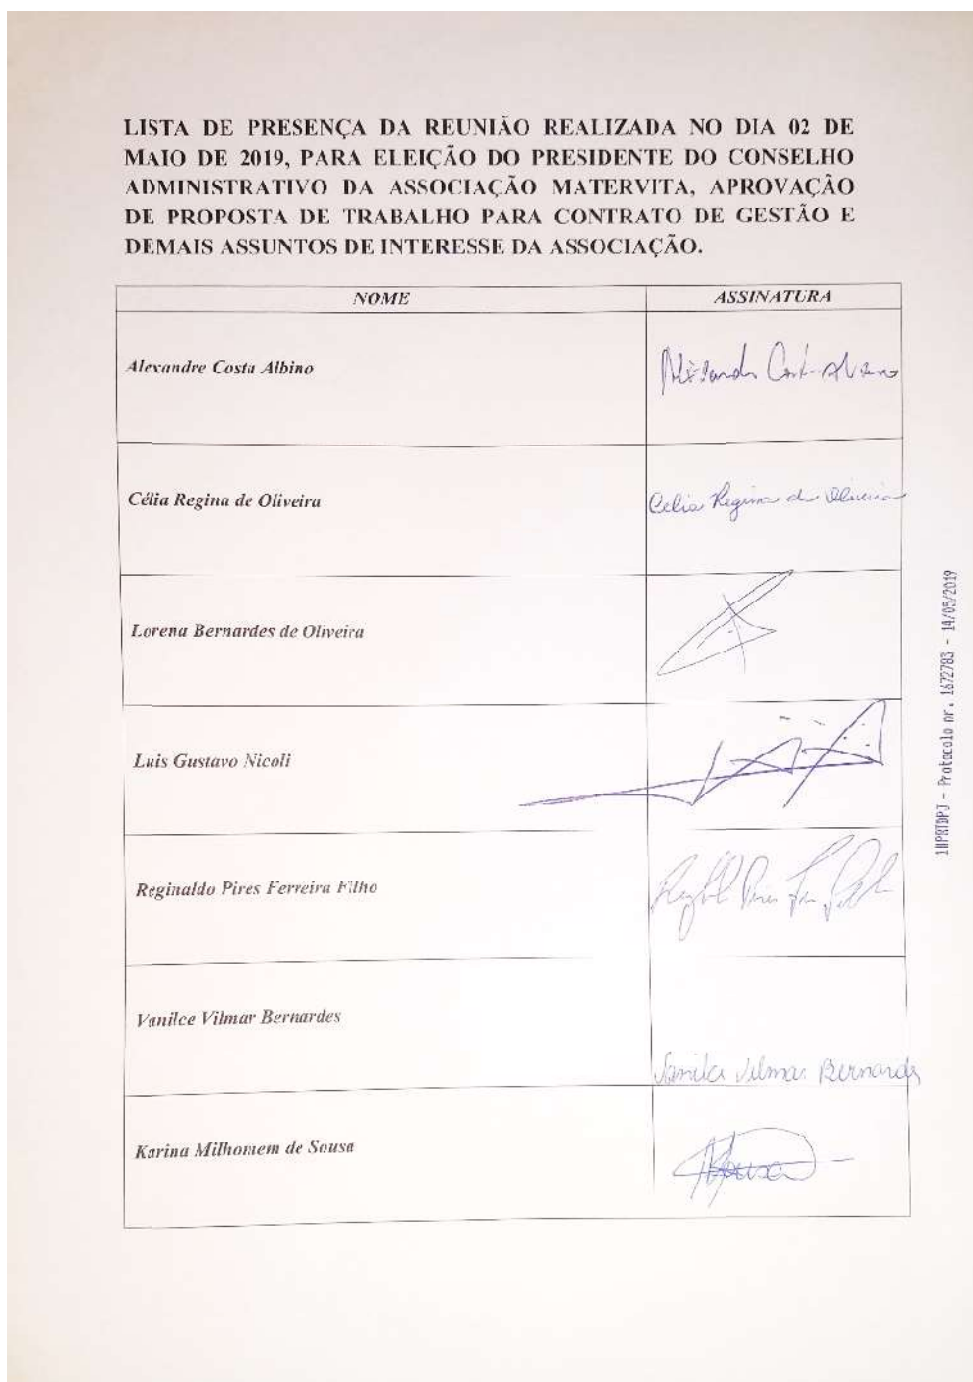 LISTA DE PRESENÇA DA REUNIÃO REALIZADA NO DIA 02 DE
MAIO DE 2019, PARA ELEIÇÃO DO PRESIDENTE DO CONSELHO
ADMINISTRATIVO DA ASSOCIAÇÃO MATERVITA, APROVAÇÃO
DE PROPOSTA DE TRABALHO PARA CONTRATO DE GESTÃO E
DEMAIS ASSUNTOS DE INTERESSE DA ASSOCIAÇÃO.
NOME ASSINATURA
Alexandre Costa Albino
Célia Regina de Oliveira Celia Regina de Oliveira
Lorena Bernardes de Oliveira
Luis Gustavo Nicoli
Reginaldo Pires Ferreira Filho
Vanilce Vilmar Bernardes
Vanilce Vilmar Bernardes
Karina Milhomem de Sousa
Protocolo nr. 1672783 - 14/05/2019